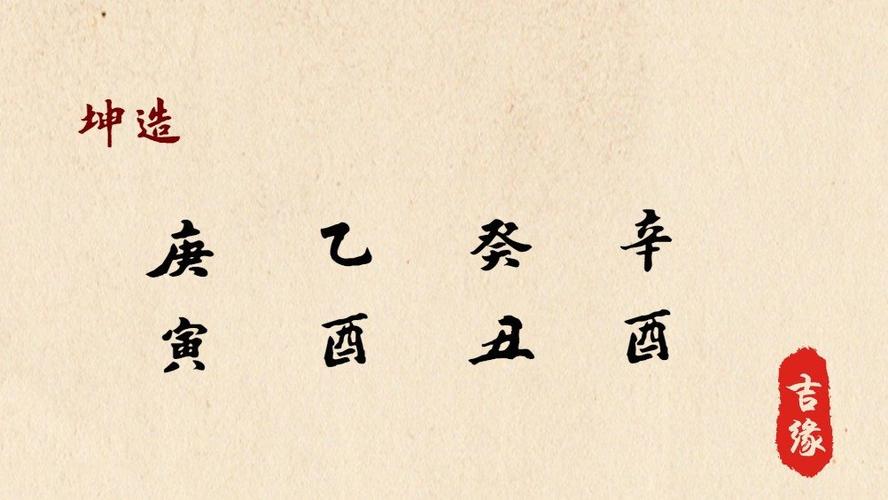 坤造
庚 乙 癸 辛
寅 酉 丑 酉
吉缘